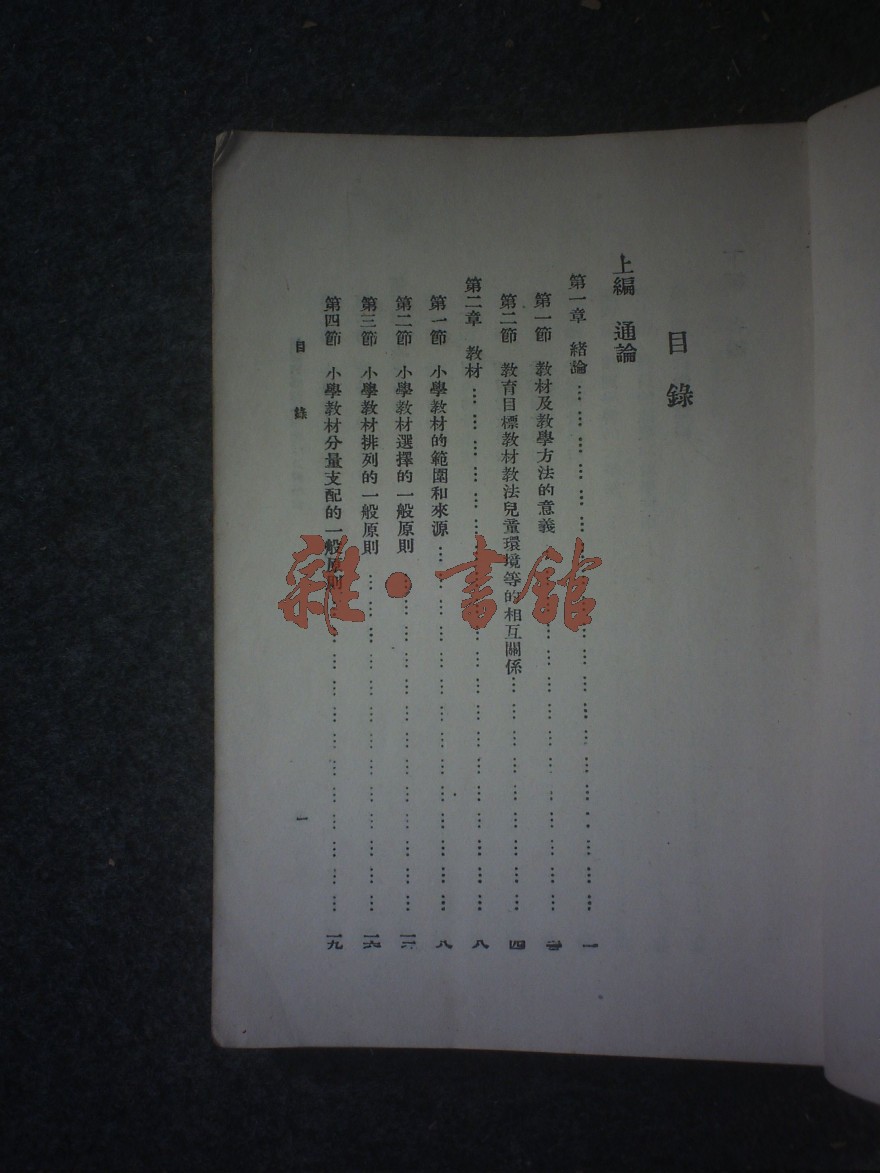 目錄
上編 通論
第一章 緒論……………………一
第一節 教材及教學方法的意義……………………
第二節 教育目標教材教法兒童環境等的相互關係……………………四
第二章 教材……………………八
第一節 小學教材的範圍和來源……………………八
第二節 小學教材選擇的一般原則……………………
第三節 小學教材排列的一般原則……………………一六
第四節 小學教材分量支配的一般原則……………………一九
目錄 一
雜·書館